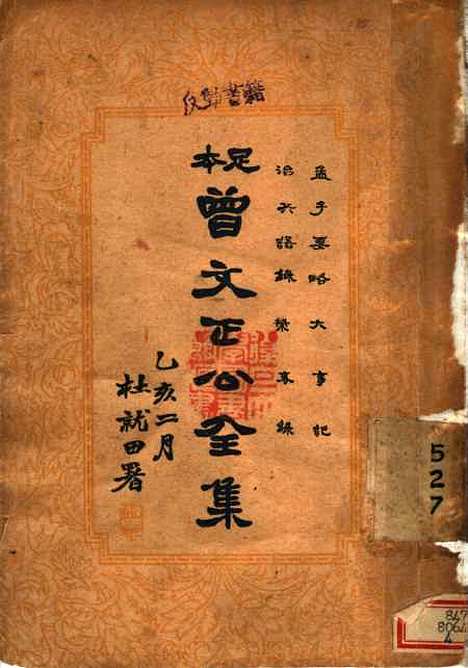 足本
曾文正公全集
孟子要略大事記
治兵語錄榮哀錄
乙亥二月
杜就田署
527
847
8064
4